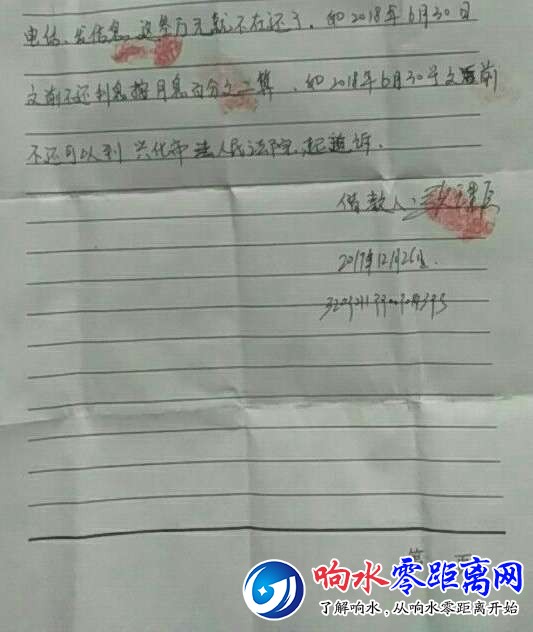 电话、发信息, 这叁万元就不在还了, 如2018年6月30日
之前不还利息按月息百分之二算、如2018年6月30号之前
不还可以到兴化市人民法院起诉.
借款人:
2017年12月26
第 页
响水零距离网
了解响水,从响水零距离开始